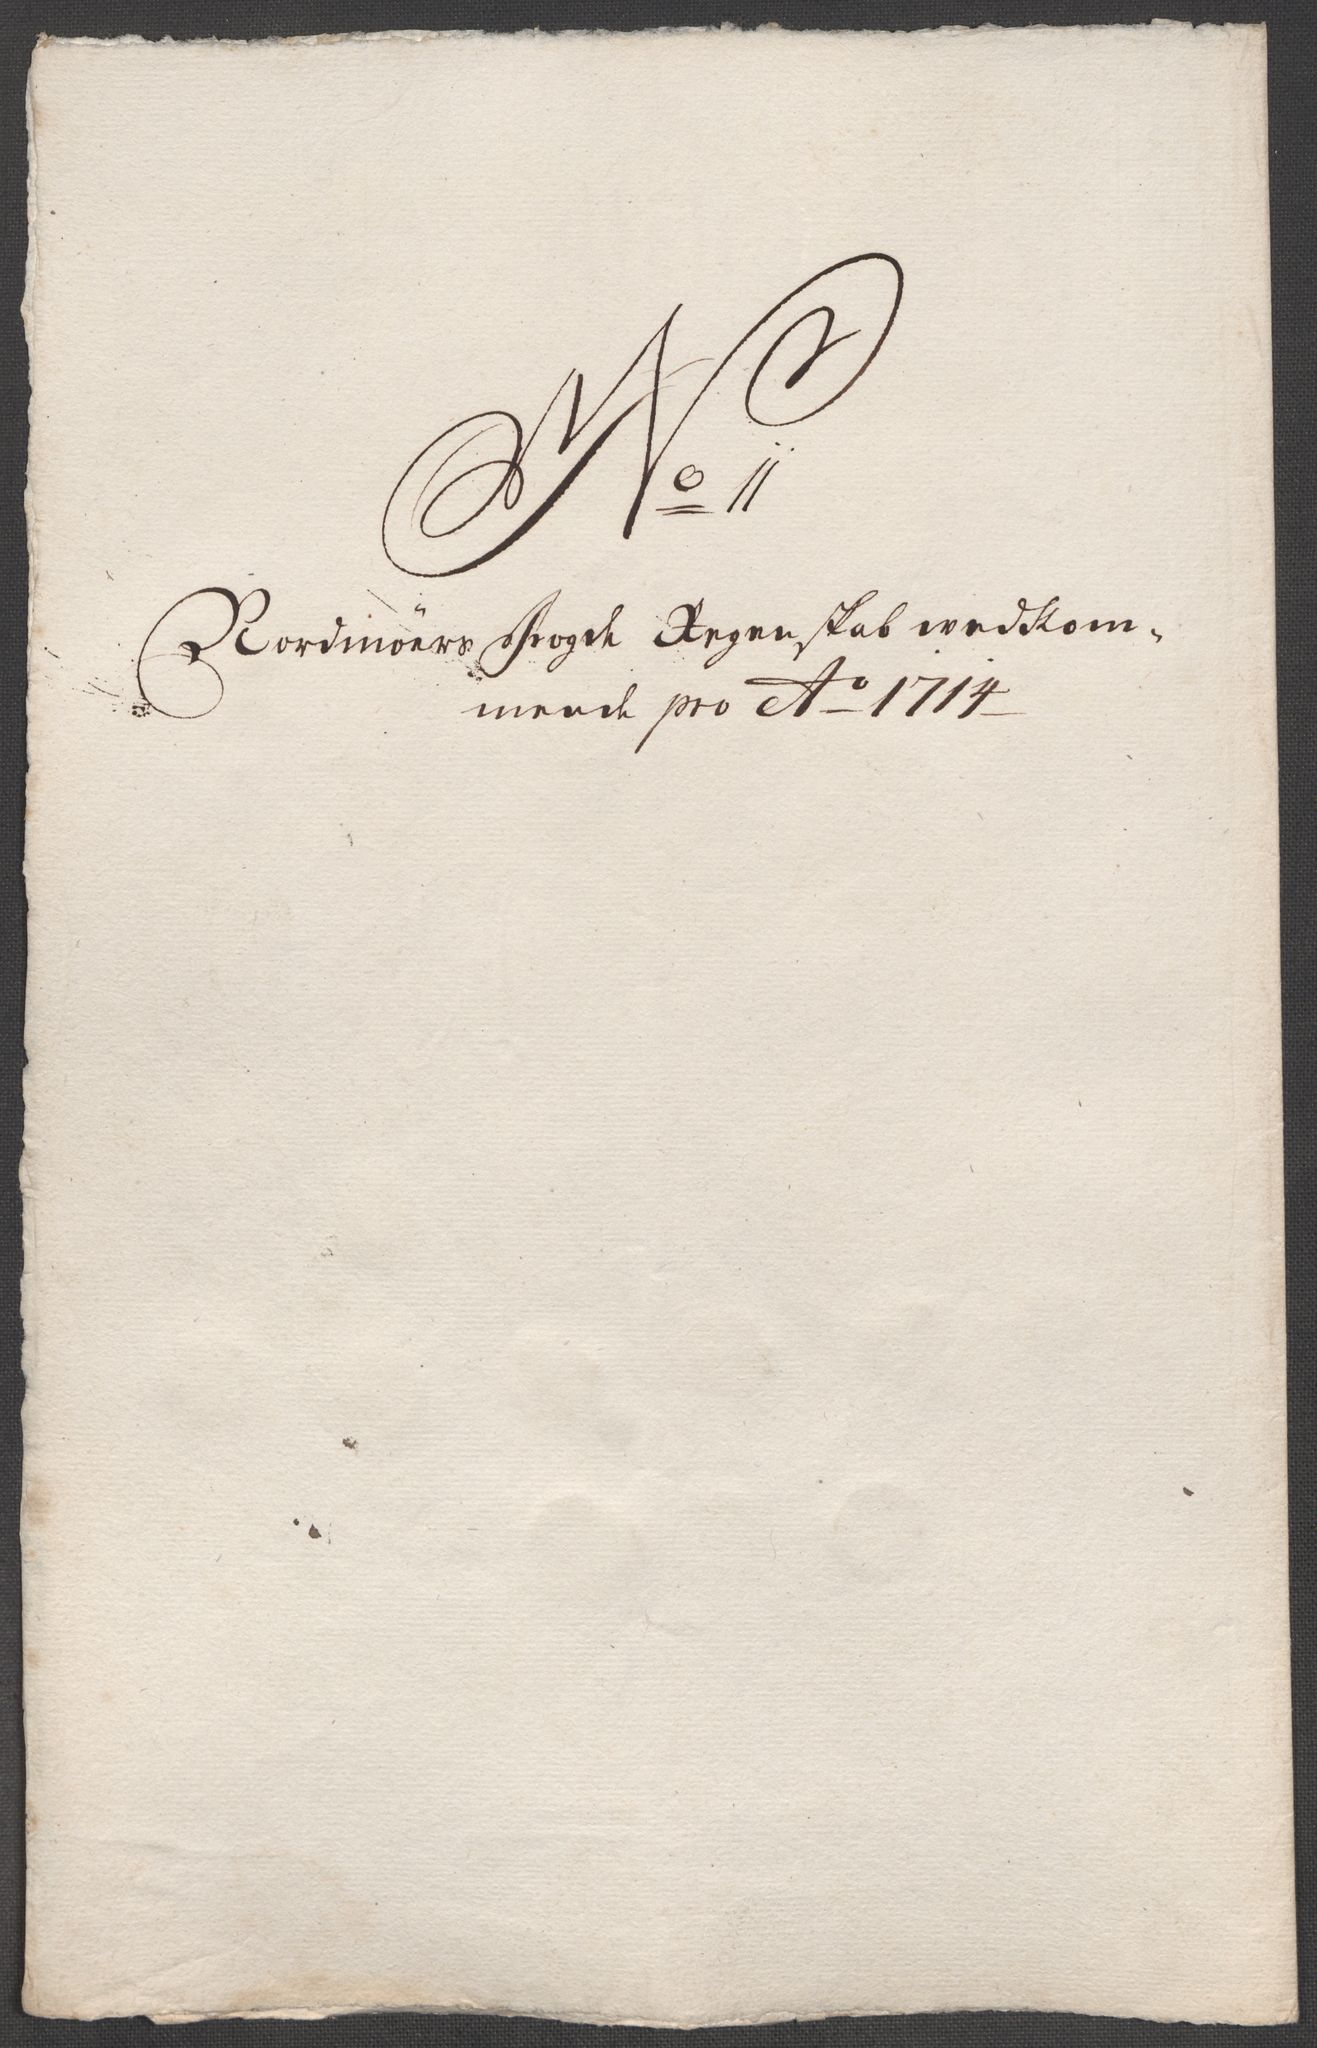 No 11
Nordmöers Fogde Regenskab wedkom-
mende pro Ao 1714